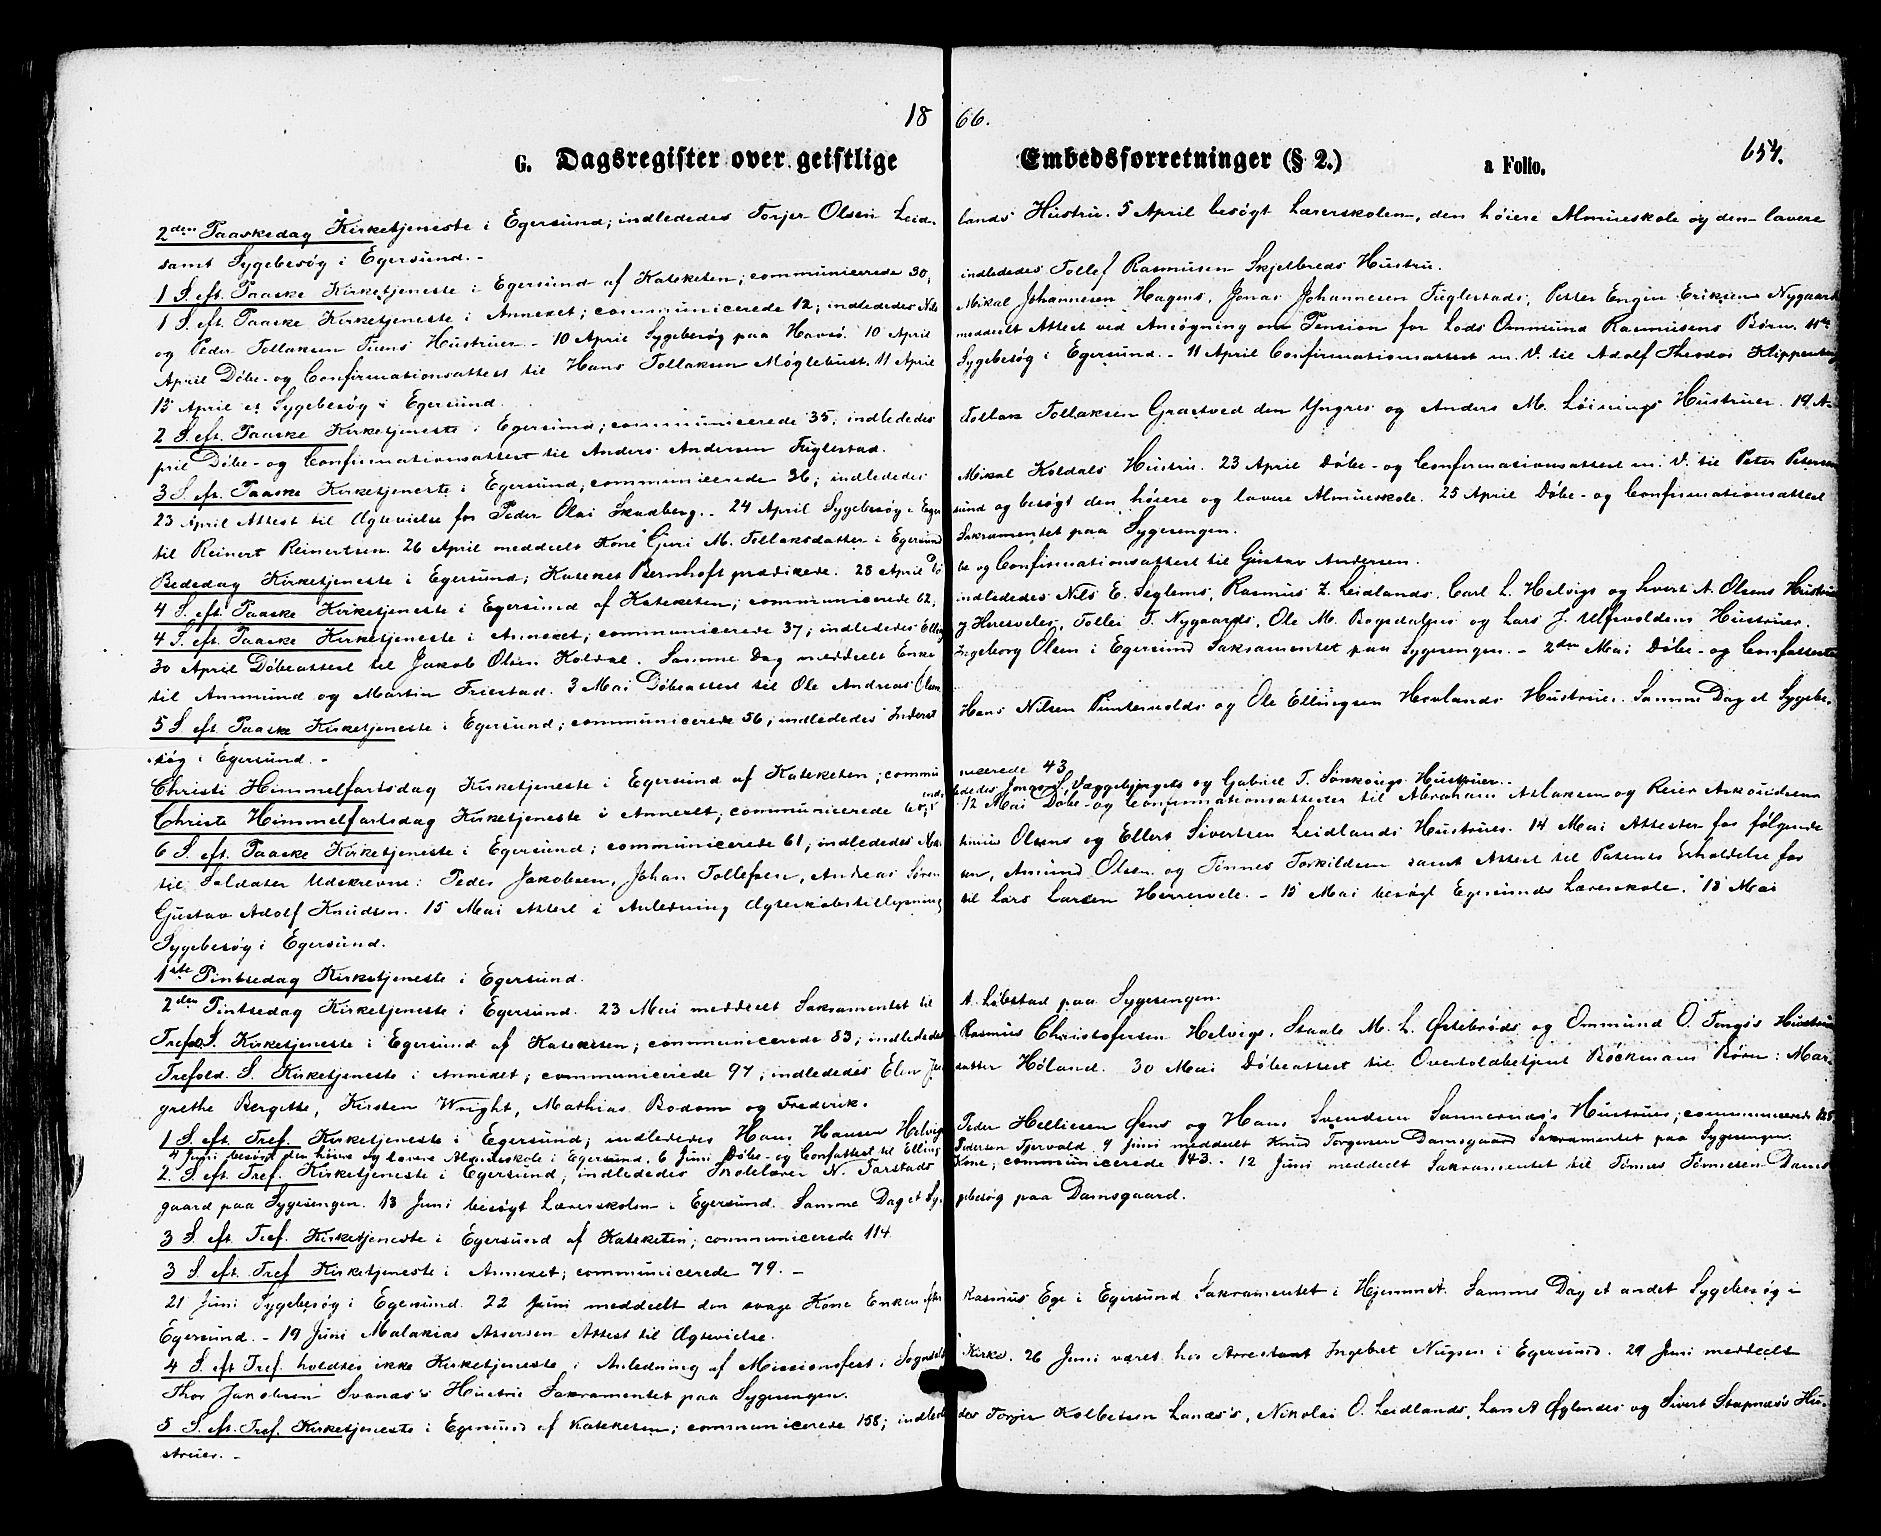 1866.
G. Dagsregister over geistlige Embedsforretninger (§ 2.) a Folio. 654.
2den Paaskedag Kirketjeneste i Egersund; indlededes Torjer Olsen Leidlands Hustru. 5 April besøgt Lærerskolen, den høiere Almueskole og den lavere
samt Sygebesøg i Egersund. -
1 S. eft. Paaske Kirketjeneste i Egersund af Kateketen; communicerede 30; indlededes Tollef Rasmusen Skjelbreds Hustru.
1 S. eft. Paaske Kirketjeneste i Annexet; communicerede 12; indlededes Nils Mikal Johannesen Hagens, Jonas Johannesen Fuglestads, Petter Engin Eriksen Nygaards
og Peder Tollaksen Tuens Hustruer. - 10 April Sygebesøg paa Havsø. 10 April meddeelt Attest ved Ansøgning om Pension for Lods Ommund Rasmusens Børn. 11te
April Døbe- og Confirmationsattest til Hans Tollaksen Møglebust. 11 April Sygebesøg i Egersund. - 11 April Confirmationsattest m. V. til Adolf Theodor
15 April et Sygebesøg i Egersund.
2 S. eft. Paaske Kirketjeneste i Egersund; communicerede 35; indlededes Tollak Tollaksen Grastved den Yngres og Anders M. Løinings Hustruer. 19 A-
pril Døbe- og Confirmationsattest til Anders Andersen Fuglestad.
3 S. eft. Paaske Kirketjeneste i Egersund; communicerede 36; indlededes Mikal Koldals Hustru. 23 April Døbe- og Confirmationsattest m. V. til Peter Petersen
23 April Attest til Ægtevielse for Peder Olai Skadberg. - 24 April Sygebesøg i Egersund og besøgt den høiere og lavere Almueskole. 25 April Døbe- og Confirmationsattest
til Reinert Reinertsen. 26 April meddeelt Kone Guri M. Tollaksdatter i Egersund Sakramentet paa Sygesengen.
Bededag Kirketjeneste i Egersund; Kateket Bernhoft prædikede. 28 April Døbe og Confirmationsattest til Gustav Andersen.
4 S. eft. Paaske Kirketjeneste i Egersund af Kateketen; communicerede 62; indlededes Nils E. Seglems, Rasmus Z. Leidlands, Carl L. Helvigs og Sivert A. Olsens Hustruer
4 S. eft. Paaske Kirketjeneste i Annexet; communicerede 37; indlededes Tollei T. Nygaards, Ole M. Bogsdalens og Lars J. Ulfsvoldens Hustruer.
30 April Døbeattest til Jakob Olsen Koldal. Samme Dag meddeelt Enke Ingeborg Olsen i Egersund Sakramentet paa Sygesengen. - 2den Mai Døbe- og Confattester
til Ammund og Martin Friestad. 3 Mai Døbeattest til Ole Andreas Olsen
5 S. eft. Paaske Kirketjeneste i Egersund; communicerede 56; indlededes Hans Nilsen Puntervolds og Ole Ellingsen Hovlands Hustruer. Samme Dag et Sygebe-
søg i Egersund. -
Christi Himmelfartsdag Kirketjeneste i Egersund af Kateketen; communicerede 43
Christi Himmelfartsdag Kirketjeneste i Annexet; communicerede indlededes Jonas S. Væggebjergets og Gabriel T. Hustruer. 12 Mai Døbe- og Confirmationsattester til Abraham Aslaksen og Reier
6 S. eft. Paaske Kirketjeneste i Egersund; communicerede 61; indlededes Olsens og Ellert Sivertsen Leidlands Hustruer. 14 Mai Attester for følgende
til Soldater Udskrevne: Peder Jakobsen, Johan Tollefsen, Andreas Sørensen, Amund Olsen og Tønnes Torkildsen samt Attest til Patents Erholdelse for
Gustav Adolf Knudsen. 15 Mai Attest i Anledning Ægteskabstillysning til Lars Larsen Herrevele. - 15 Mai besøgt Egersunds Lærerskole. 18 Mai
Sygebesøg i Egersund.
1ste Pintsedag Kirketjeneste i Egersund.
2den Pintsedag Kirketjeneste i Egersund. 23 Mai meddeelt Sakramentet til A. Løbstad paa Sygesengen.
Trefold. S. Kirketjeneste i Egersund af Kateketen; communicerede 83; indlededes Rasmus Christofersen Helvigs, Staale M. L. Østebrøds og Ommund O. Tengs's Hustruer
Trefold. S. Kirketjeneste i Annexet; communicerede 97; indlededes Elen Høland. 30 Mai Døbeattest til Overtoldbetjent Böckmans Børn: Mar-
grethe Bergitte, Kirsten Wright, Mathias Bodom og Frederik.
1 S. eft. Tref. Kirketjeneste i Egersund; indlededes Hans Hansen Helvigs Peder Helliesen Øens og Hans Svendsen Sannernæs's Hustruer; communicerede 128.
4 Juni besøgt den høiere og lavere Almueskole i Egersund. 6 Juni Døbe- og Confattest til Elling Pedersen Tjervold. 9 Juni meddeelt Knud Torgersen Damsgaard Sakramentet paa Sygesengen.
2 S. eft. Tref. Kirketjeneste i Egersund; indlededes Skolelærer N. Tarstads Kone; communicerede 143. - 12 Juni meddeelt Sakramentet til Tønnes Tønnesen Dams-
gaard paa Sygesengen. 13 Juni besøgt Lærerskolen i Egersund. Samme Dag et Sygebesøg paa Damsgaard.
3 S. eft. Tref. Kirketjeneste i Egersund af Kateketen; communicerede 114.
3 S. eft. Tref Kirketjeneste i Annexet; communicerede 79. -
21 Juni Sygebesøg i Egersund. 22 Juni meddeelt den svage Kone Enken efter Rasmus Ege i Egersund Sakramentet i Hjemmet. Samme Dag et andet Sygebesøg i
Egersund. - 19 Juni Malakias Assersen Attest til Ægtevielse.
4 S. eft Tref. holdtes ikke Kirketjeneste i Anledning af Missionsfest i Sogndals Kirke. 26 Juni været hos Arrestant Ingebret Nugsen i Egersund. 29 Juni meddeelt
Thor Jakobsen Svanæs's Hustru Sakramentet paa Sygesengen.
5 S. eft. Tref. Kirketjeneste i Egersund af Kateketen; communicerede 158; indlededes Torjer Kolbetsen Lanæs's, Nikolai O. Leidlands, Lars A Øglendes og Sivert Stapnæs's Hu-
struer. -